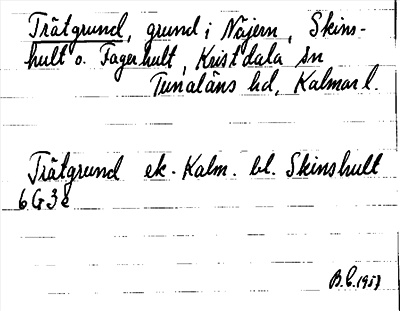 Trätgrund, grund i Näjern, Skins-
hult o. Fagerhult, Kristdala sn
Tunaläns hd, Kalmar l.
Trätgrund ek. Kalm. bl. Skinshult
6G3e
B.E. 1958